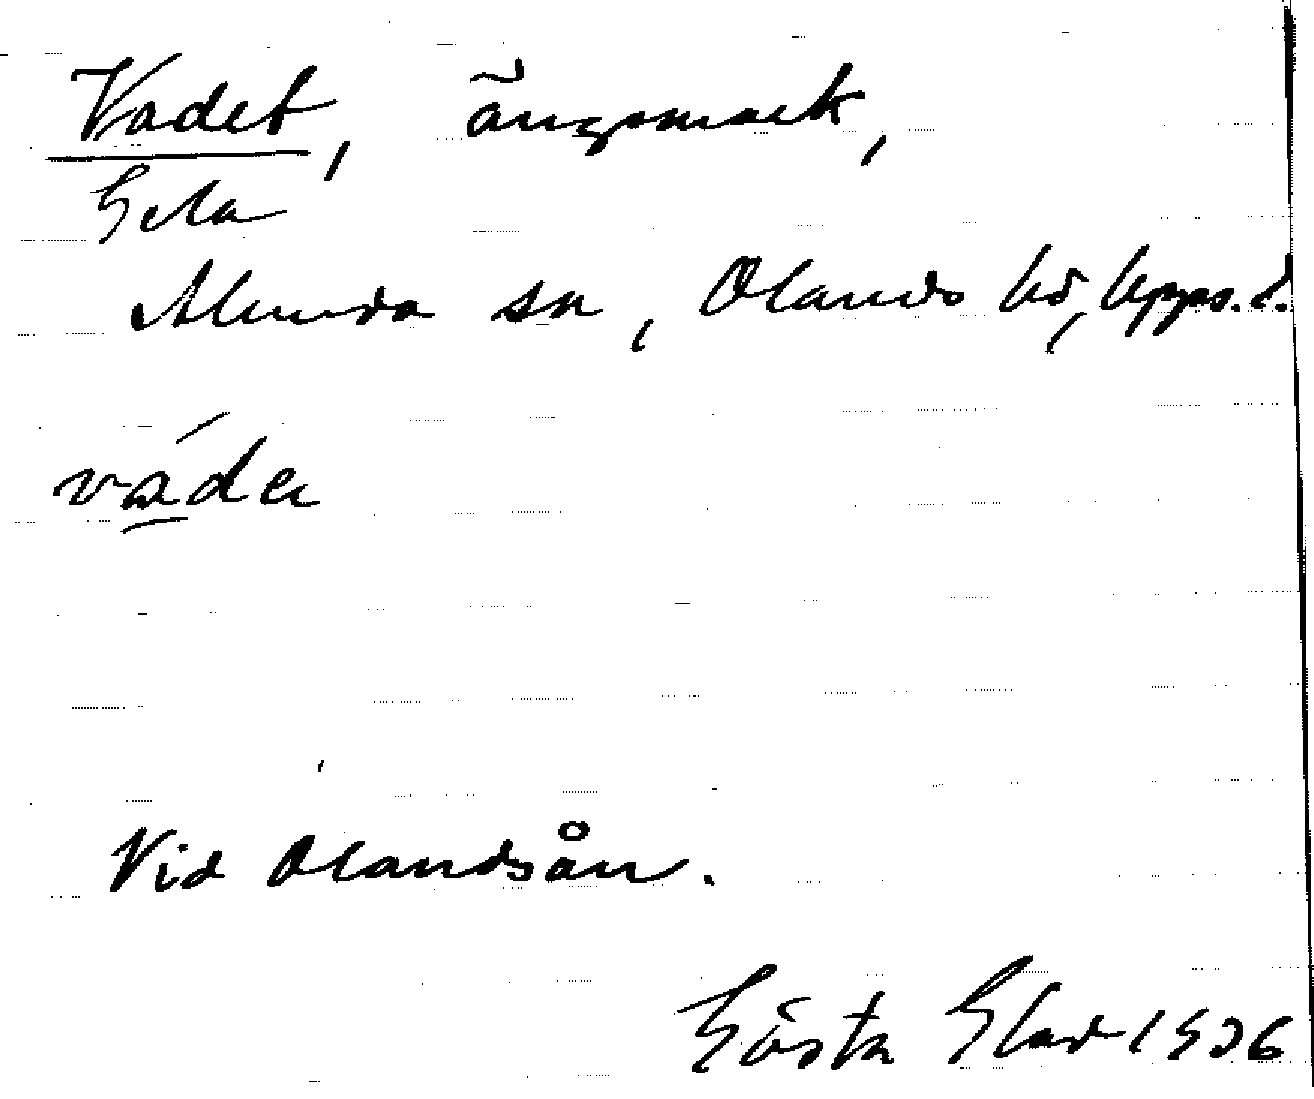 Vadet, ängsmark,
Geta
Alunda sn, Olands hd, Upps. l.
váda
Vid Olandsån.
Gösta Glad 1936